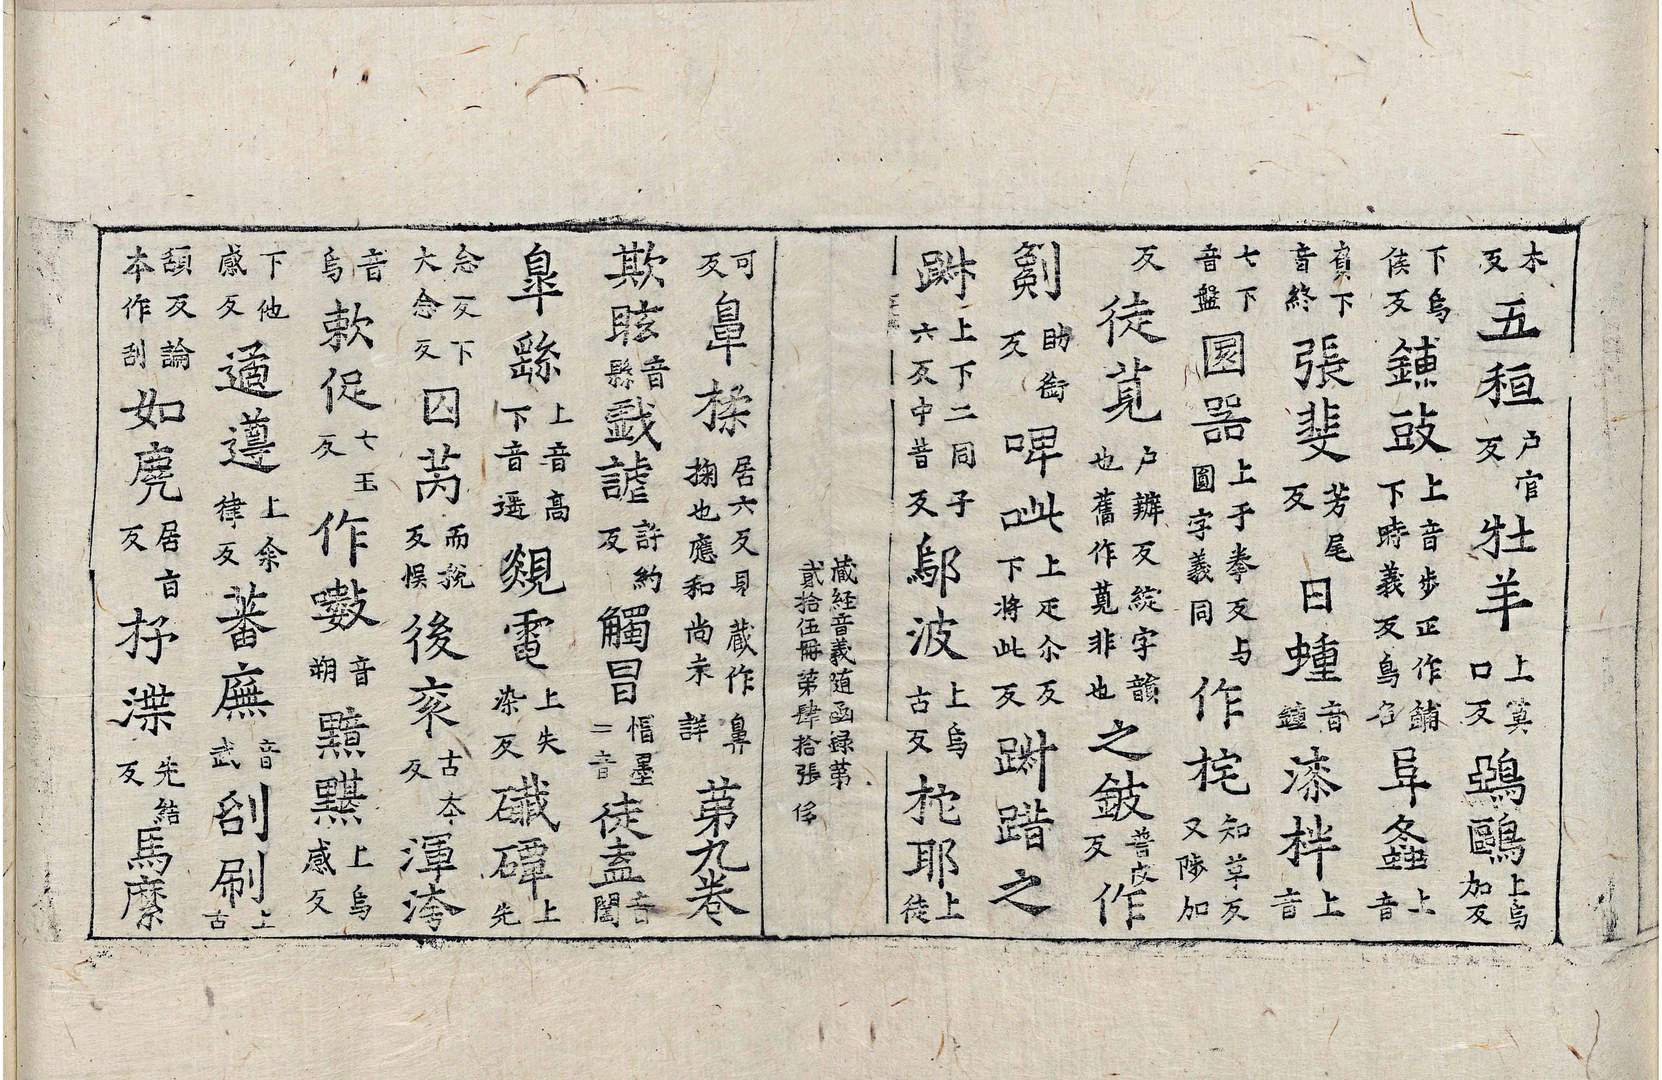 木反五秬户官反牡羊上莫口反鵶鷗上烏加反
下烏侯反鏄鼓上音步正作鋪下時義反鳥名阜螽上音
負下音終張斐芳尾反日蝩音鍾漆柈上音
七下音盤圎器上于拳反与圓字義同作柁知草反又陟加
反徒莧户辦反綻字韻也舊作莧非也之鈹普皮反作
劖助銜反啤呲上疋尒反下将此反踋踖之
踧上下二同子六反中昔反鄔波上烏古反柁耶上徒
藏経音義随函録第貳拾伍冊第肆拾張 侈
可反鼻揉居六反見藏作鼻掬也應和尚未詳第九卷
欺眩音縣戲謔許約反觸冒愲墨二音徒盍音闔
臯繇上音高下音遥覢電上失染反礛磹上先
念反下大念反囚芮而挩反悮後衮古夲反渾洿
音烏欶促七玉反作嗽音朔黯黮上烏感反
下他感反遹遵上余律反蕃廡音武刮刷上古
頢反論夲作刮如虎居盲反杼渫先結反馬糜